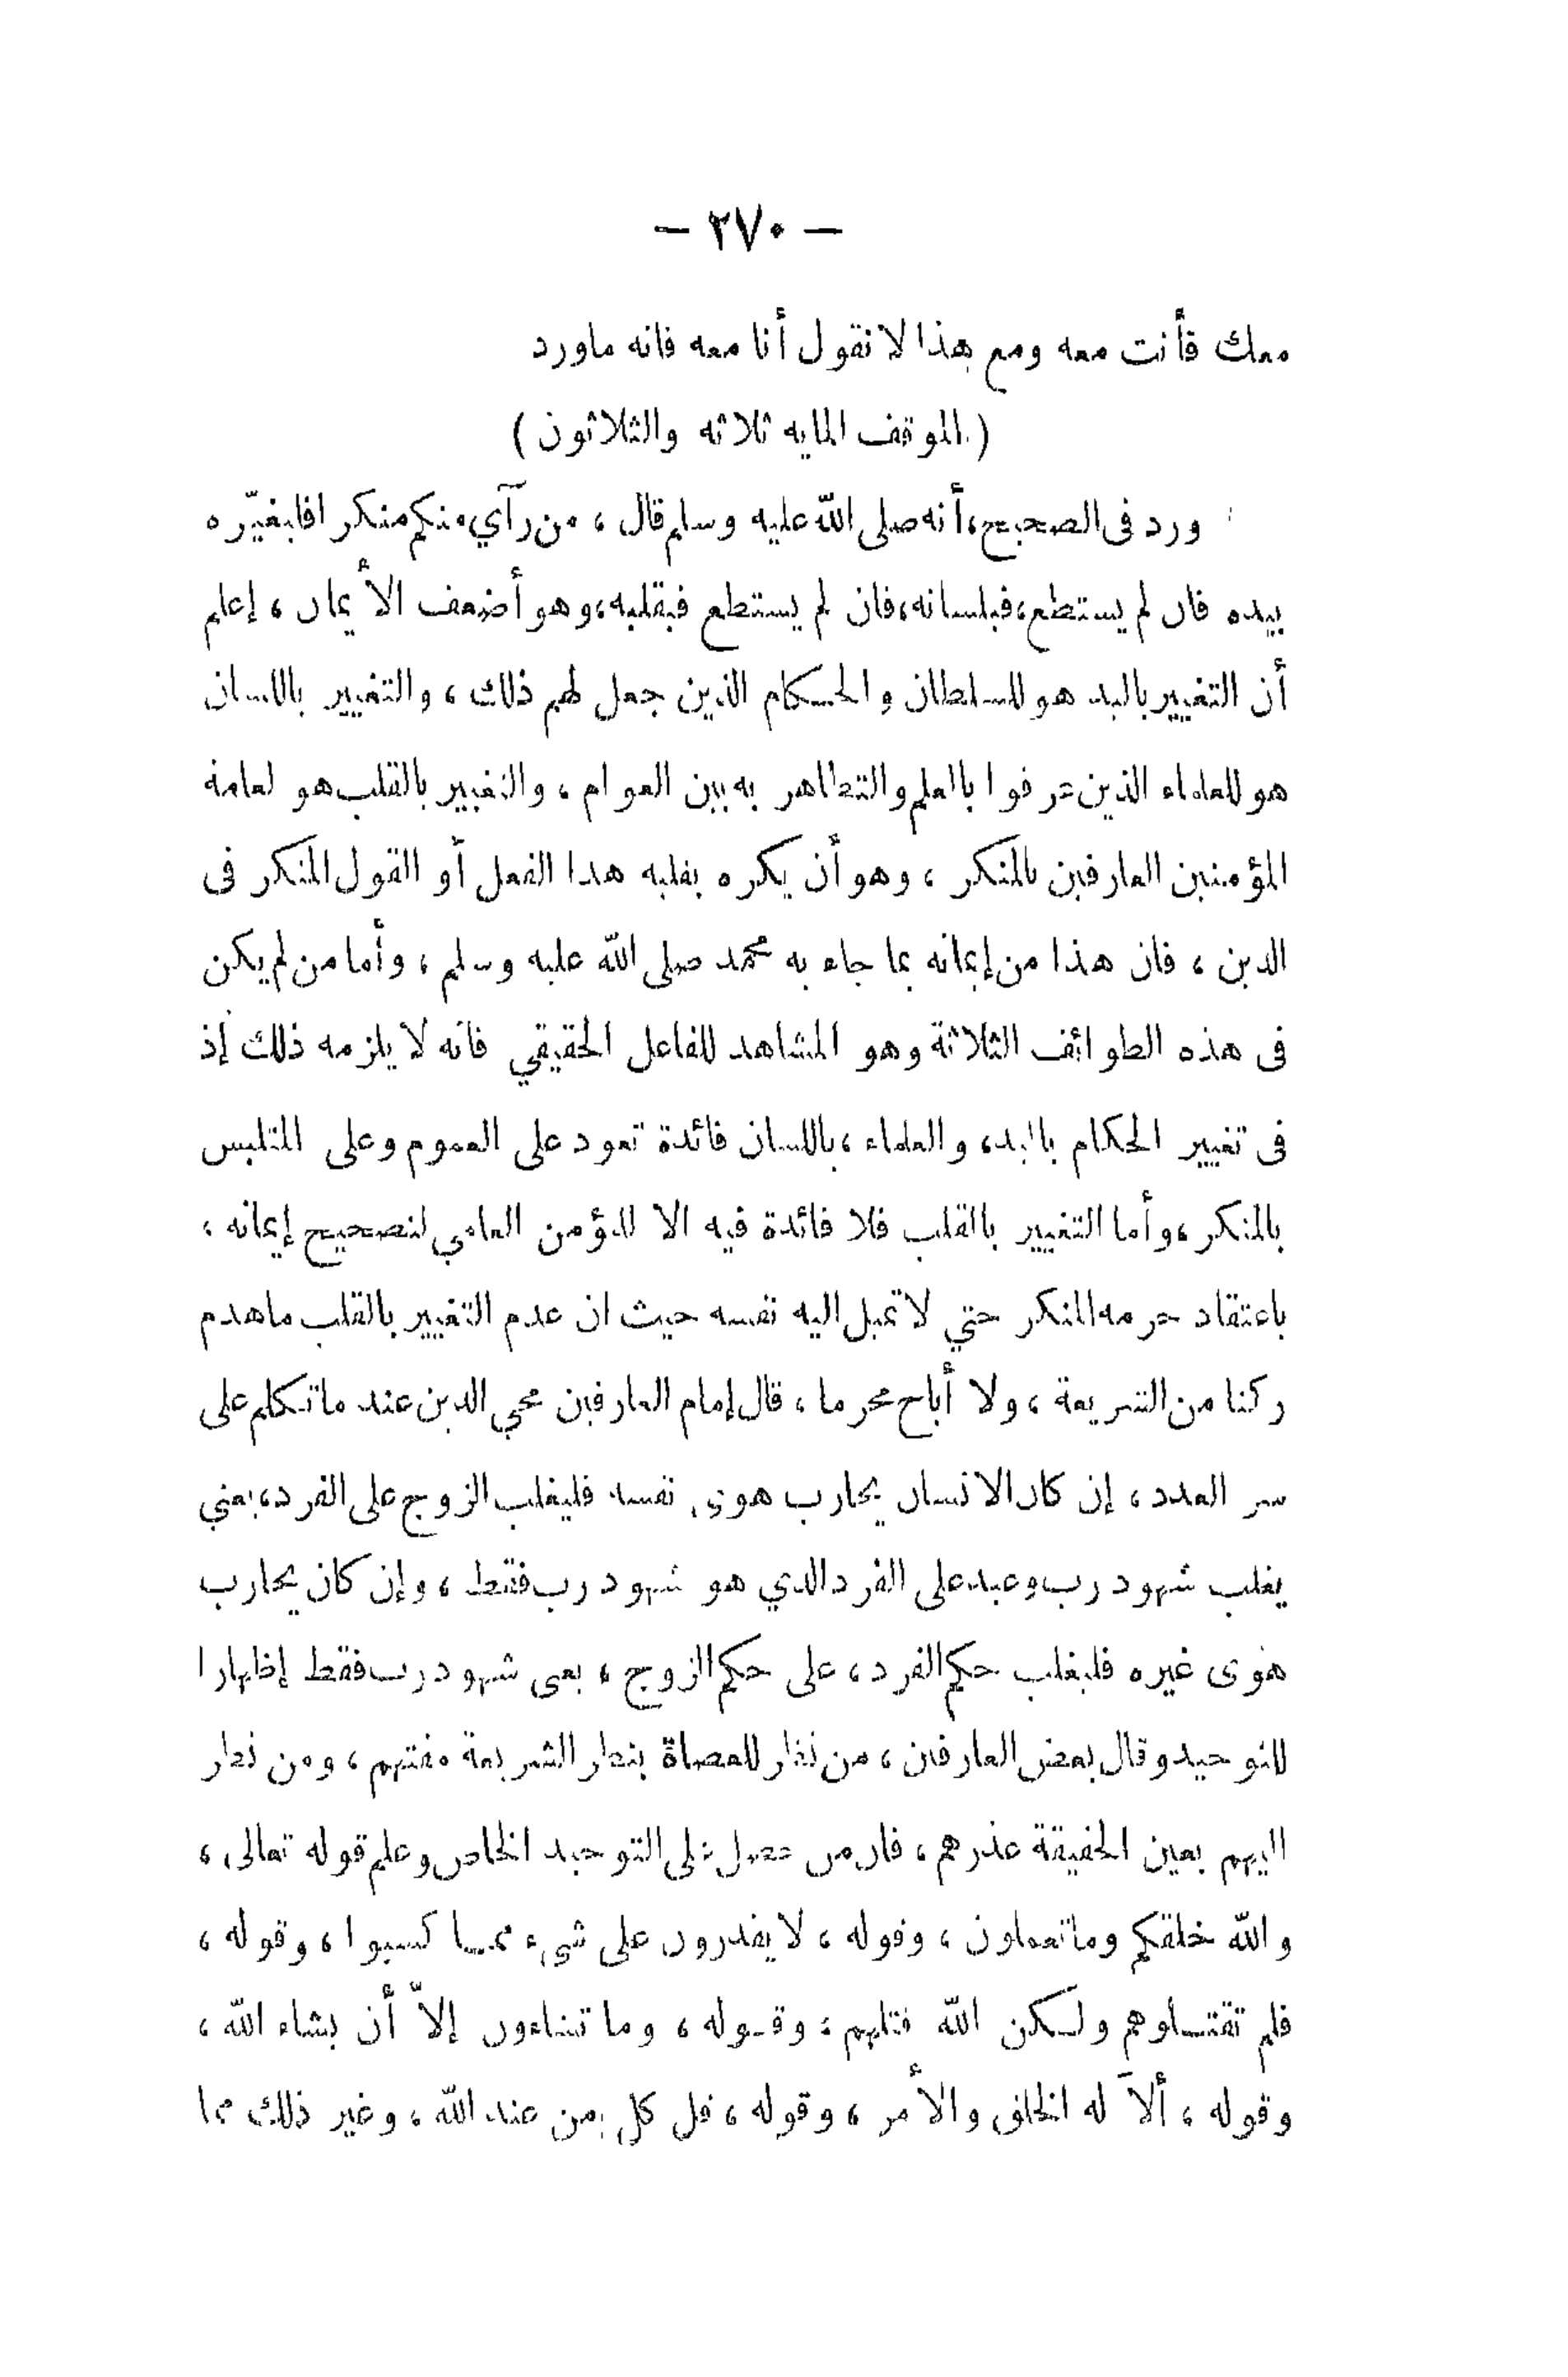 — ٢٧٠ —
معك فأنت معه ومع هذا لا نقول أنا معه فانه ماورد
( الموقف المايه ثلاثه والثلاثون )
ورد فى الصحيح، أنه صلى الله عليه وسلم قال ، من رآي منكم منكرا فليغيّره
بيده فان لم يستطع، فبلسانه، فان لم يستطع فبقلبه، وهو أضعف الأيمان ، إعلم
أن التغيير باليد هو للسلطان والحكام الذين جعل لهم ذلك ، والتغيير باللسان
هو للعلماء الذين عرفوا بالعلم والتظاهر به بين العوام ، والتغيير بالقلب هو لعامة
المؤمنين العارفين بالمنكر ، وهو أن يكره بقلبه هذا الفعل أو القول المنكر فى
الدين ، فان هذا من إيمانه بما جاء به محمد صلى الله عليه وسلم ، وأما من لم يكن
فى هذه الطوائف الثلاثة وهو المشاهد للفاعل الحقيقي فانه لا يلزمه ذلك إذ
فى تغيير الحكام باليد، والعلماء ، باللسان فائدة تعود على العموم وعلى المتلبس
بالمنكر ، وأما التغيير بالقلب فلا فائدة فيه الا للمؤمن العامي لتصحيح إيمانه ،
باعتقاد حرمه المنكر حتي لا تميل اليه نفسه حيث ان عدم التغيير بالقلب ماهدم
ركنا من الشريعة ، ولا أباح محرما ، قال إمام العارفين محي الدين عند ماتكلم على
سر العدد ، إن كان الانسان يحارب هوى نفسه فليغلب الزوج على الفرد، يعني
يغلب شهود رب وعبد على الفرد الذي هو شهود رب فقط ، وإن كان يحارب
هوى غيره فليغلب حكم الفرد ، على حكم الزوج ، يعى شهود رب فقط إظهارا
للتوحيد وقال بعض العارفين ، من نظر للعصاة بنظر الشريعة مقتهم ، ومن نظر
اليهم بعين الحقيقة عذرهم ، فان من حصل على التوحيد الخاص وعلم قوله تعالى ،
والله خلقكم وماتعملون ، وقوله ، لا يقدرون على شىء مما كسبوا ، وقوله ،
فلم تقتلوهم ولكن الله قتلهم ، وقوله ، وما تشاءون إلاّ أن يشاء الله ،
وقوله ، ألاَ له الخلق والأمر ، وقوله ، قل كل من عند الله ، وغير ذلك مما